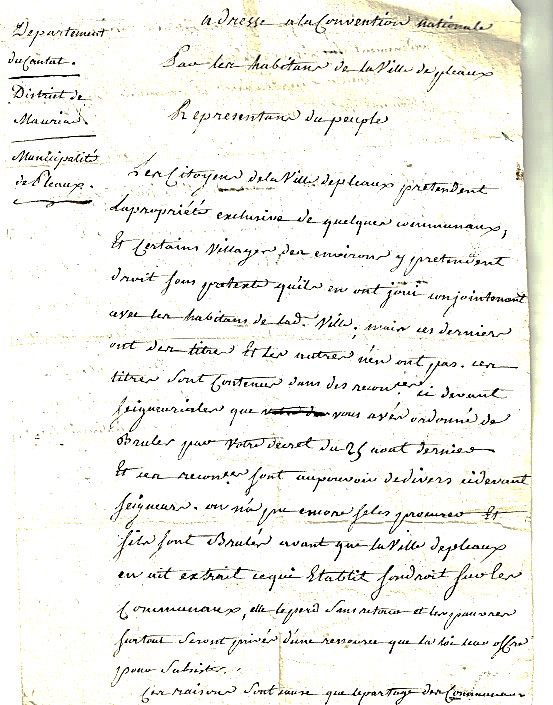 Departement
du Cantal.
District de
Mauriac
Municipalité
de Pleaux.
adresse a la Convention nationale
Par les habitans de la Ville de pleaux
Representans du peuple
Les Citoyens de la Ville de pleaux pretendent
la propriété exclusive de quelques communaux,
Et Certains Villages des environs y pretendent
droit sous pretexte qu'ils en ont joui conjointement
avec les habitans de lad. Ville; mais ces derniers
ont des titres Et les autres n'en ont pas. ces
titres sont Contenus dans des reconces ci devant
seigneuriales que vous avés ordonné de
Bruler par Votre decret du 25 aout dernier
Et ces reconces sont au pouvoir de divers cidevant
seigneurs. on n'a pu encore se les procurer Et
sils sont Brulés avant que la Ville de pleaux
en ait extrait ce qui Etablit son droit sur les
Communaux, elle le perd sans retour et les pauvres
surtout seront privés d'une ressource que la loi leur offre
pour Subsister.
Ces raisons sont cause que le partage des Communaux